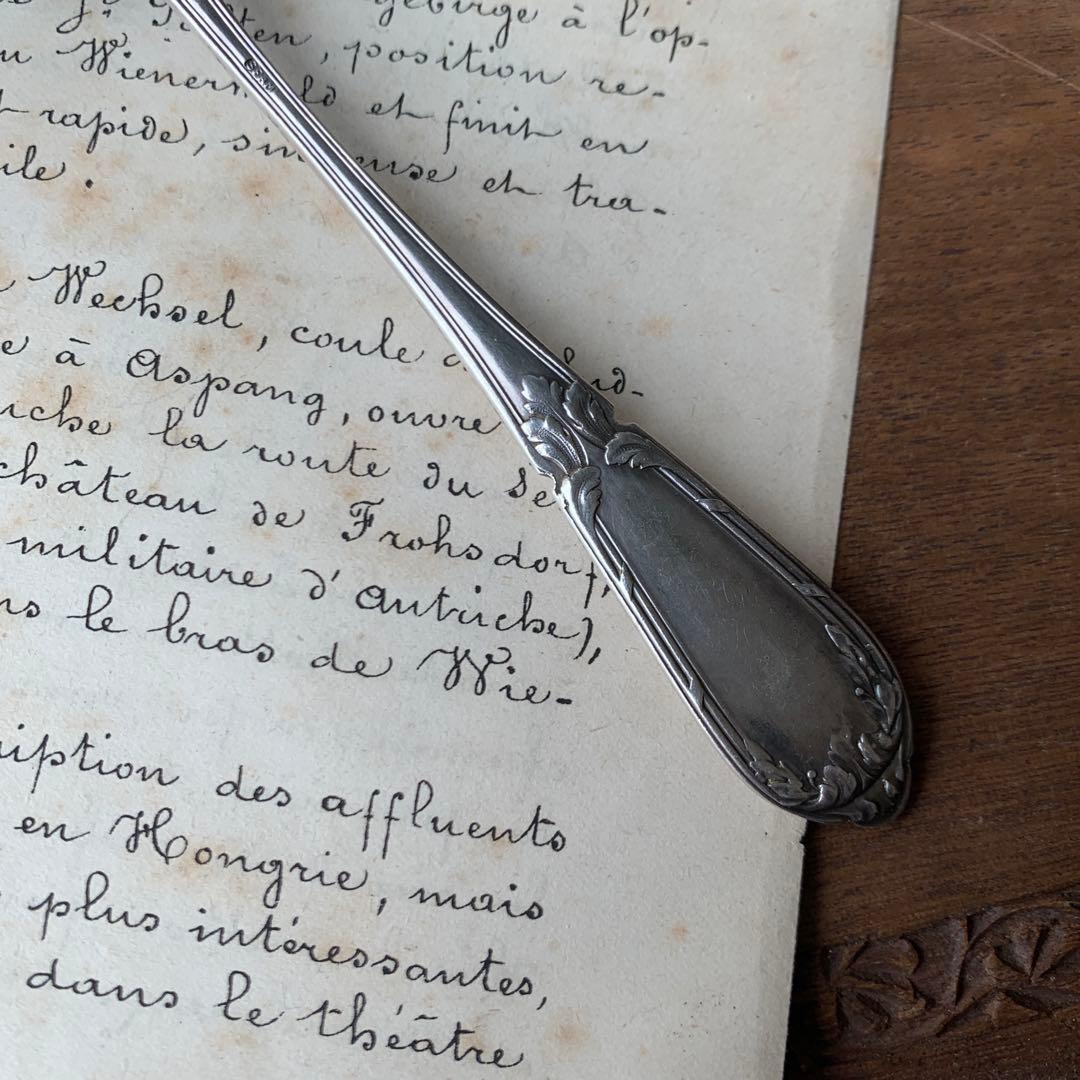 gebirge à l'op-
, position re-
et finit en
rapide, et tra-
Wechsel, coule
à Aspang, ouvre
la route du
château de Frohsdorf,
militaire d'Autriche),
le bras de Wie-
des affluents
en Hongrie, mais
plus intéressantes,
dans le théâtre